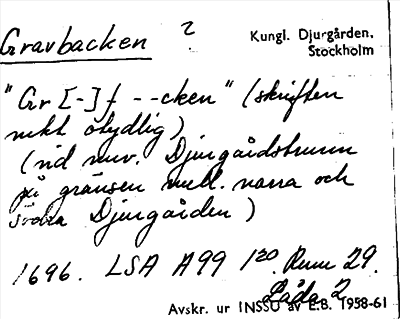 Gravbacken ?
Kungl. Djurgården.
Stockholm
"Gr [-] f - - cken" (skriften
mkt otydlig)
(vid nuv. Djurgårdsbrunn
på gränsen mell. norra och
södra Djurgården)
1696. LSA A99 1²⁰. Rum 29.
Låda 2
Avskr. ur INSSO av E.B. 1958-61